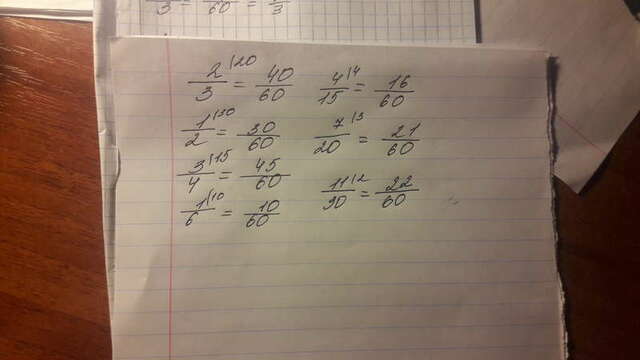 2/3 |20 = 40/60 4/15 |4 = 16/60
1/2 |30 = 30/60 7/20 |3 = 21/60
3/4 |15 = 45/60 11/30 |2 = 22/60
1/6 |10 = 10/60